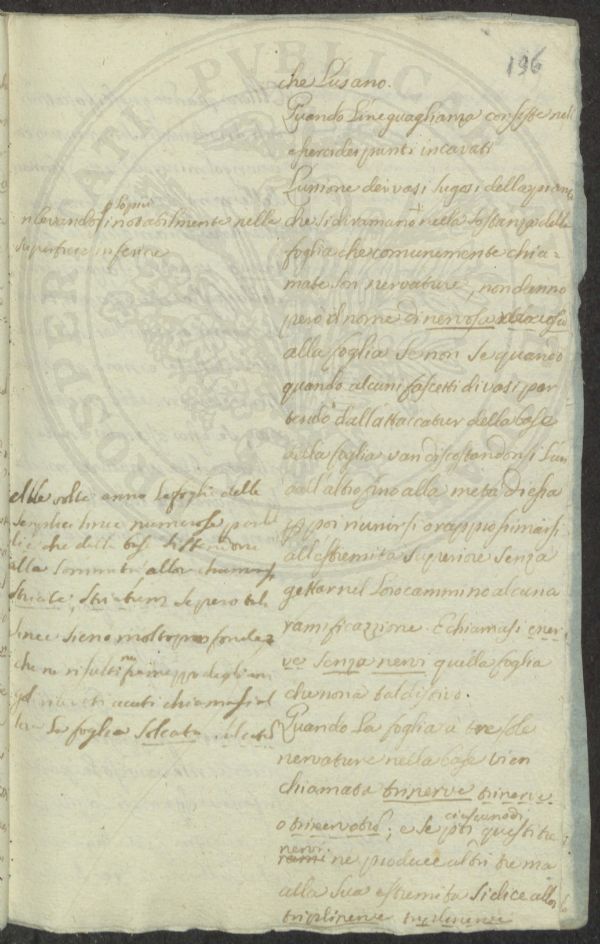 196
che l'usano.
Quando l'ineguaglianza consiste nell
esserci dei punti incavati
L'unione dei vasi sugosi della pianta
che si diramano nella sostanza della
foglia che comunemente chia=
mate son nervature, non danno
pero il nome di nervosa
alla foglia se non se quando
quando alcuni fascetti di vasi par
tendo dall'attaccatur della base
della foglia van discostandosi l'un
dall'altro fino alla metà di essa
per poi riunirsi o rappiossimarsi
all'estremita superiore senza
gettar nel loro cammino alcuna
ramificazzione. E chiamasi ener
ve senza nervi quella foglia
che non à tal divisivo.
Quando la foglia à tre sole
nervature nella base vien
chiamata trinerve trinerve
o trinervato; e se poi ciascuno di questi tre
nervi ne produce altri tre ma
alla sua estremita si dice allor
triplinerve triplinerve
rilevandosi lo piu notabilmente nella
superficie inferiore
alle volte anno le foglie delle
semplici linee numerose paral
lele che dalla base si stendono
alla sommita allor chiamasi
striate: striatum se pero tali
linee sieno molto profonde
che ne risulti in mezzo degli an
goli acuti chiamasi al
lora la foglia solcata sulcatum